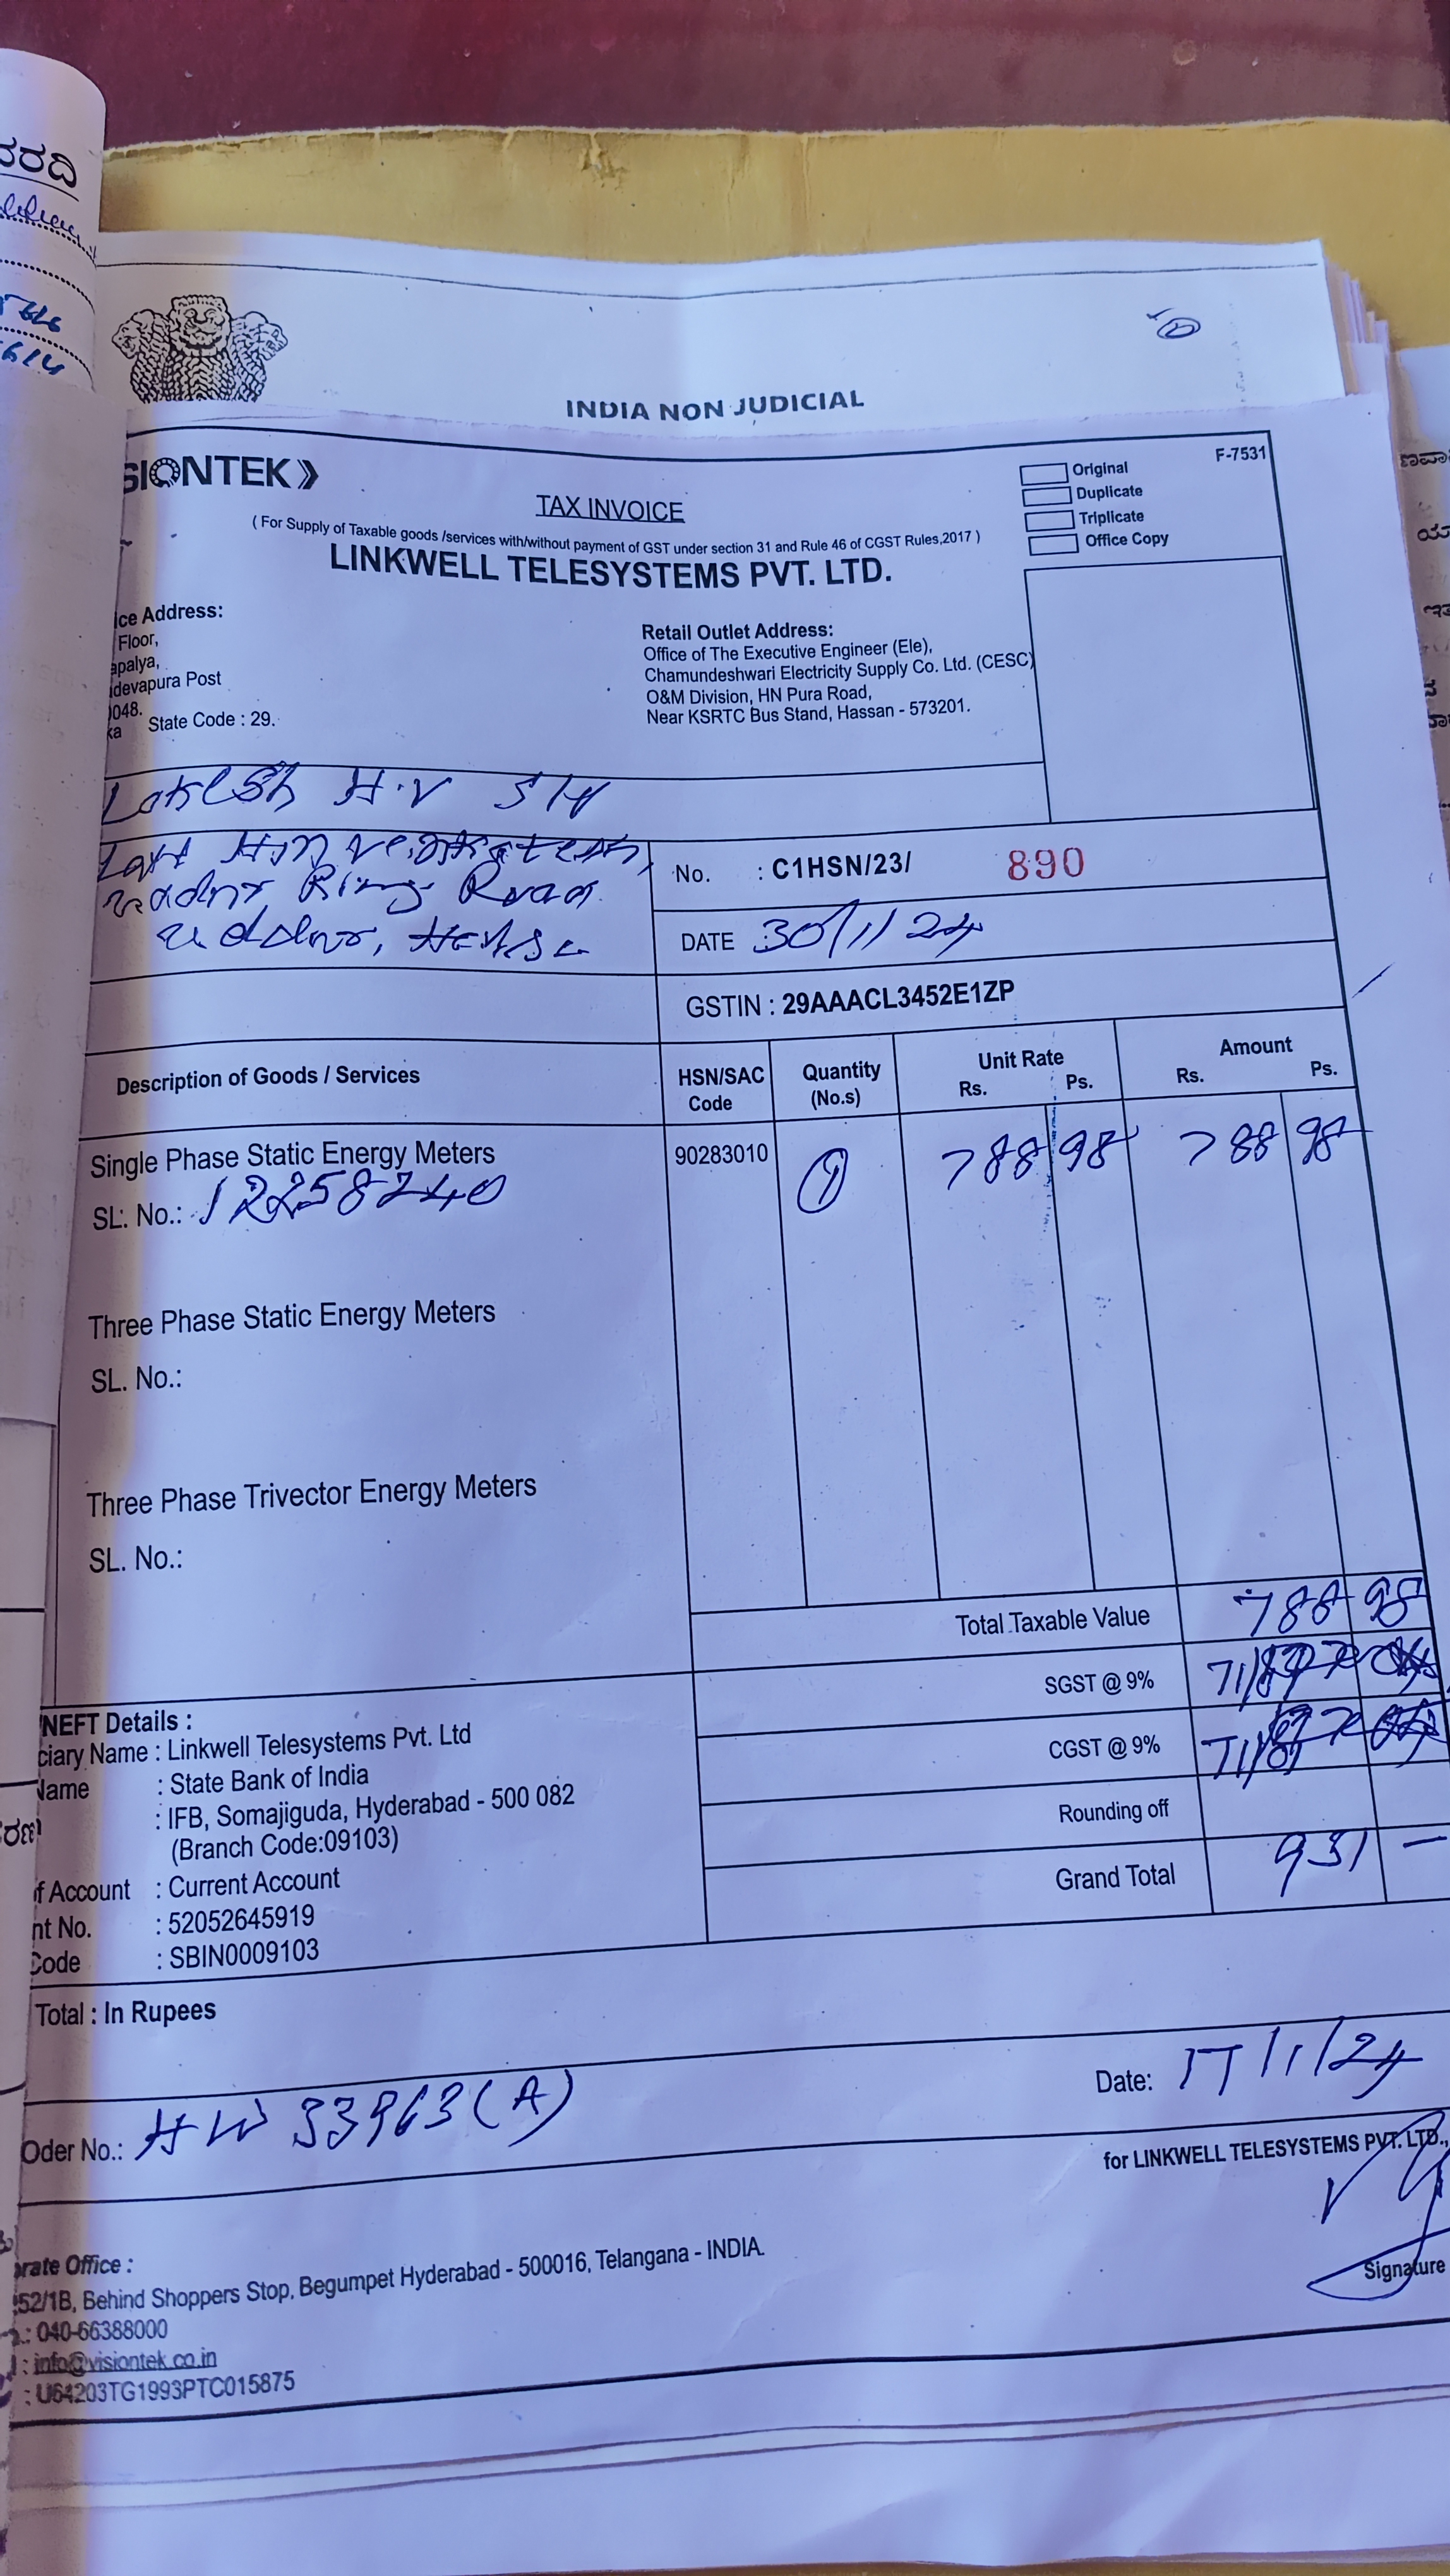 ರದಿ
INDIA NON JUDICIAL
SIONTEK
F-7531
TAX INVOICE
Original
Duplicate
Triplicate
Office Copy
( For Supply of Taxable goods /services with/without payment of GST under section 31 and Rule 46 of CGST Rules,2017 )
LINKWELL TELESYSTEMS PVT. LTD.
ce Address:
Floor,
apalya,
devapura Post
048.
ka State Code : 29.
Retail Outlet Address:
Office of The Executive Engineer (Ele),
Chamundeshwari Electricity Supply Co. Ltd. (CESC)
O&M Division, HN Pura Road,
Near KSRTC Bus Stand, Hassan - 573201.
H.V
Ring Road
No. : C1HSN/23/ 890
DATE 30/1/24
GSTIN : 29AAACL3452E1ZP
Description of Goods / Services HSN/SAC Code Quantity (No.s) Unit Rate Rs. Ps. Amount Rs. Ps.
Single Phase Static Energy Meters 90283010 1 788 98 788 98
SL. No.: 12258740
Three Phase Static Energy Meters
SL. No.:
Three Phase Trivector Energy Meters
SL. No.:
Total Taxable Value 788 98
SGST @ 9% 71/
CGST @ 9% 71/
Rounding off
Grand Total 931 —
NEFT Details :
ciary Name : Linkwell Telesystems Pvt. Ltd
Name : State Bank of India
: IFB, Somajiguda, Hyderabad - 500 082
(Branch Code:09103)
f Account : Current Account
nt No. : 52052645919
Code : SBIN0009103
Total : In Rupees
Oder No.: HW 33963(A)
Date: 17/1/24
for LINKWELL TELESYSTEMS PVT. LTD.,
Signature
rate Office :
52/1B, Behind Shoppers Stop, Begumpet Hyderabad - 500016, Telangana - INDIA.
: 040-66388000
: info@visiontek.co.in
: U64203TG1993PTC015875